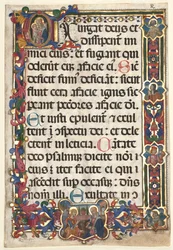 xurgat deus et
dissipent in
imici eius: et fugiant qui
oderunt eum a facie ei Sic
deficit fum deficiāt: sicut
fluit cera a facie ignis sic
pereant pctores a facie dī
Et iusti epulent et exul
tent ī cspectu dei: et dele
ctent in leticia. Cātate
deo psalmum dicite noī
eius iter facite ei qui
ascedit sup occasū: dn̄s
nomē illi. Exultate in